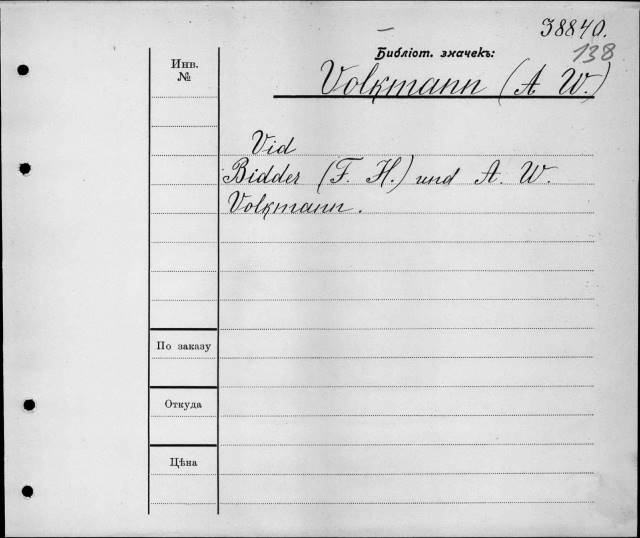 38840.
138
Библіот. значекъ:
Инв.
№
Volkmann (A W.)
Vid
Bidder (F. H.) und A. W.
Volkmann.
По заказу
Откуда
Цѣна